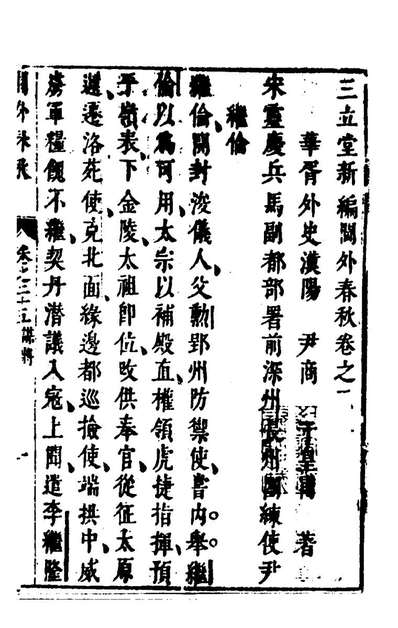 三立堂新編閫外春秋卷之一
華胥外史漢陽 尹商 著
宋靈慶兵馬副都部署前深州長州團練使尹
繼倫
繼倫開封浚儀人父勳郢州防禦使嘗內舉繼
倫以爲可用太宗以補殿直權領虎捷指揮預
平嶺表下金陵太祖卽位改供奉官從征太原
還遷洛苑使充北面緣邊都巡撿使端拱中威
虜軍糧餽不繼契丹潛議入寇上聞遣李繼隆
閫外春秋 卷之三十五 謀將 一